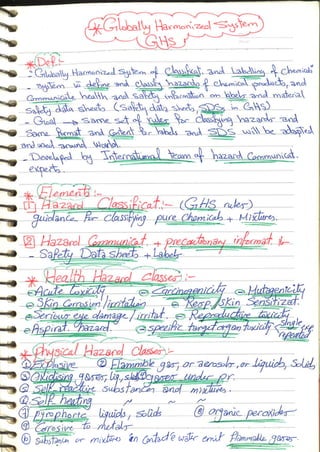 * Globally Harmonized System
GHS
* Def:-
"Globally Harmonized System of Classificat. and Labelling of Chemicals"
- system is define and classify hazards of chemical products, and
Communicate health and safety information on labels and material
Safety data sheets (Safety data sheets, SDS in GHS)
- Goal → same set of rules for classifying hazards and
Same format and Content for labels and SDS will be adopted
and used around World.
- Developed by International team of hazard Communicat.
experts.
* Elements:-
1 Hazard Classificat:- (GHS rules)
guidance for classifying pure chemicals + Mixtures.
2 Hazard Communicat. + precautionary informat. :-
- Safety Data Sheets + Labels
* Health Hazard Classes:-
Acute toxicity Carcinogenicity Mutagenicity
Skin Corrosion/irritation Resp./Skin Sensitizat.
Serious eye damage/irritat. Reproductive toxicity
Aspirat. hazard specific target organ toxicity single repeated
* Physical Hazard Classes:-
① Explosive ② Flammable gas, or aerosols, or liquids, Solids
③ Oxidising gases, liq, solids gases under pr.
Self reactive substances and mixtures.
Self heating ~ ~ ~
⑦ pyrophoric liquids, solids ⑧ organic peroxides
⑨ Corrosive to metals
⑩ substances or mixtures in Contact é water emit flammable gases.